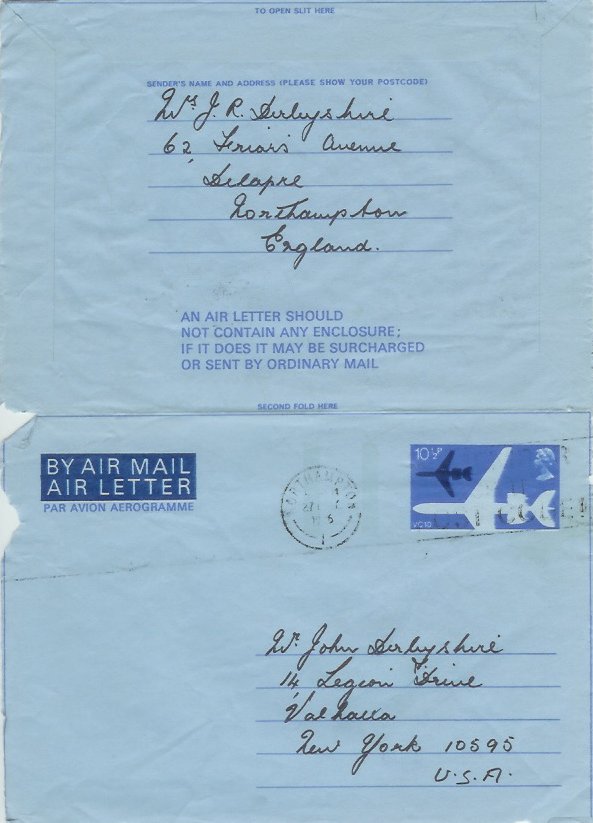 TO OPEN SLIT HERE
SENDER'S NAME AND ADDRESS (PLEASE SHOW YOUR POSTCODE)
Mrs J. R. Derbyshire
62 Friars Avenue
Delapre
Northampton
England.
AN AIR LETTER SHOULD
NOT CONTAIN ANY ENCLOSURE;
IF IT DOES IT MAY BE SURCHARGED
OR SENT BY ORDINARY MAIL
SECOND FOLD HERE
BY AIR MAIL
AIR LETTER
PAR AVION AEROGRAMME
NORTHAMPTON
10½P
VC10
Mr. John Derbyshire
14 Legion Drive
Valhalla
New York 10595
U.S.A.